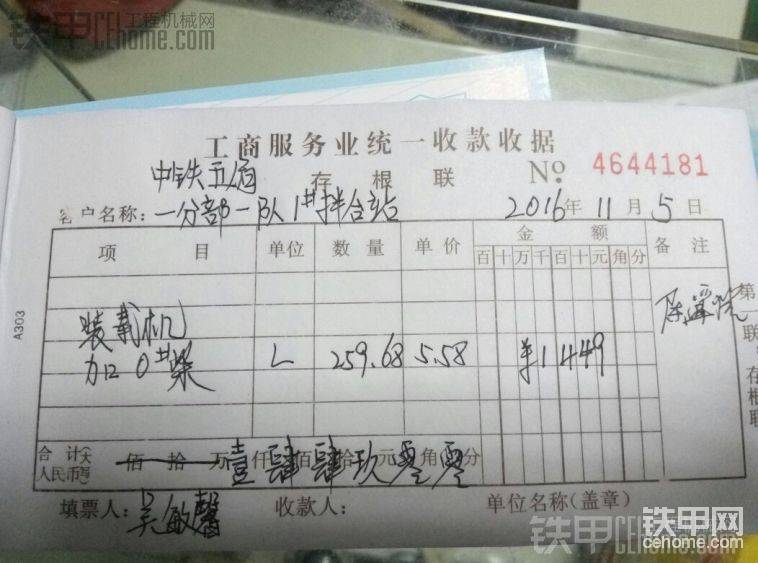 铁甲 工程机械网
CEhome.com
工商服务业统一收款收据
存根联 № 4644181
中铁五局
客户名称: 一分部一队1#拌合站 2016年11月5日
项目 单位 数量 单价 金额 备注
百十万千百十元角分
装载机
加0#柴 L 259.68 5.58 ¥1449
合计(大写)人民币 佰拾万壹仟肆佰肆拾玖元零角零分
填票人: 吴敏馨 收款人: 单位名称(盖章)
A303
第一联:存根联
铁甲网
cehome.com
铁甲 CEhome.com